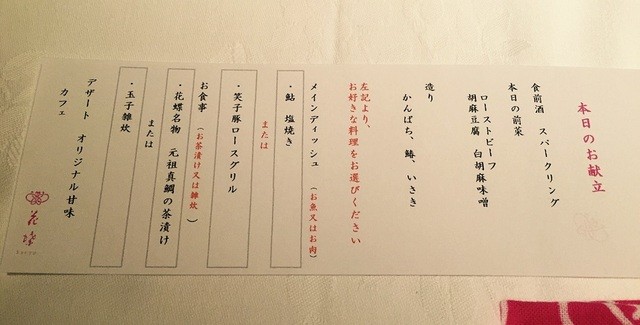 本日のお献立
食前酒 スパークリング
本日の前菜
ローストビーフ
胡麻豆腐 白胡麻味噌
造り
かんぱち、鰆、いさき
左記より、
お好きな料理をお選びください
メインディッシュ (お魚又はお肉)
・鮎 塩焼き
または
・笑子豚ロースグリル
お食事 (お茶漬け又は雑炊)
・花蝶名物 元祖真鯛の茶漬け
または
・玉子雑炊
デザート オリジナル甘味
カフェ
花蝶